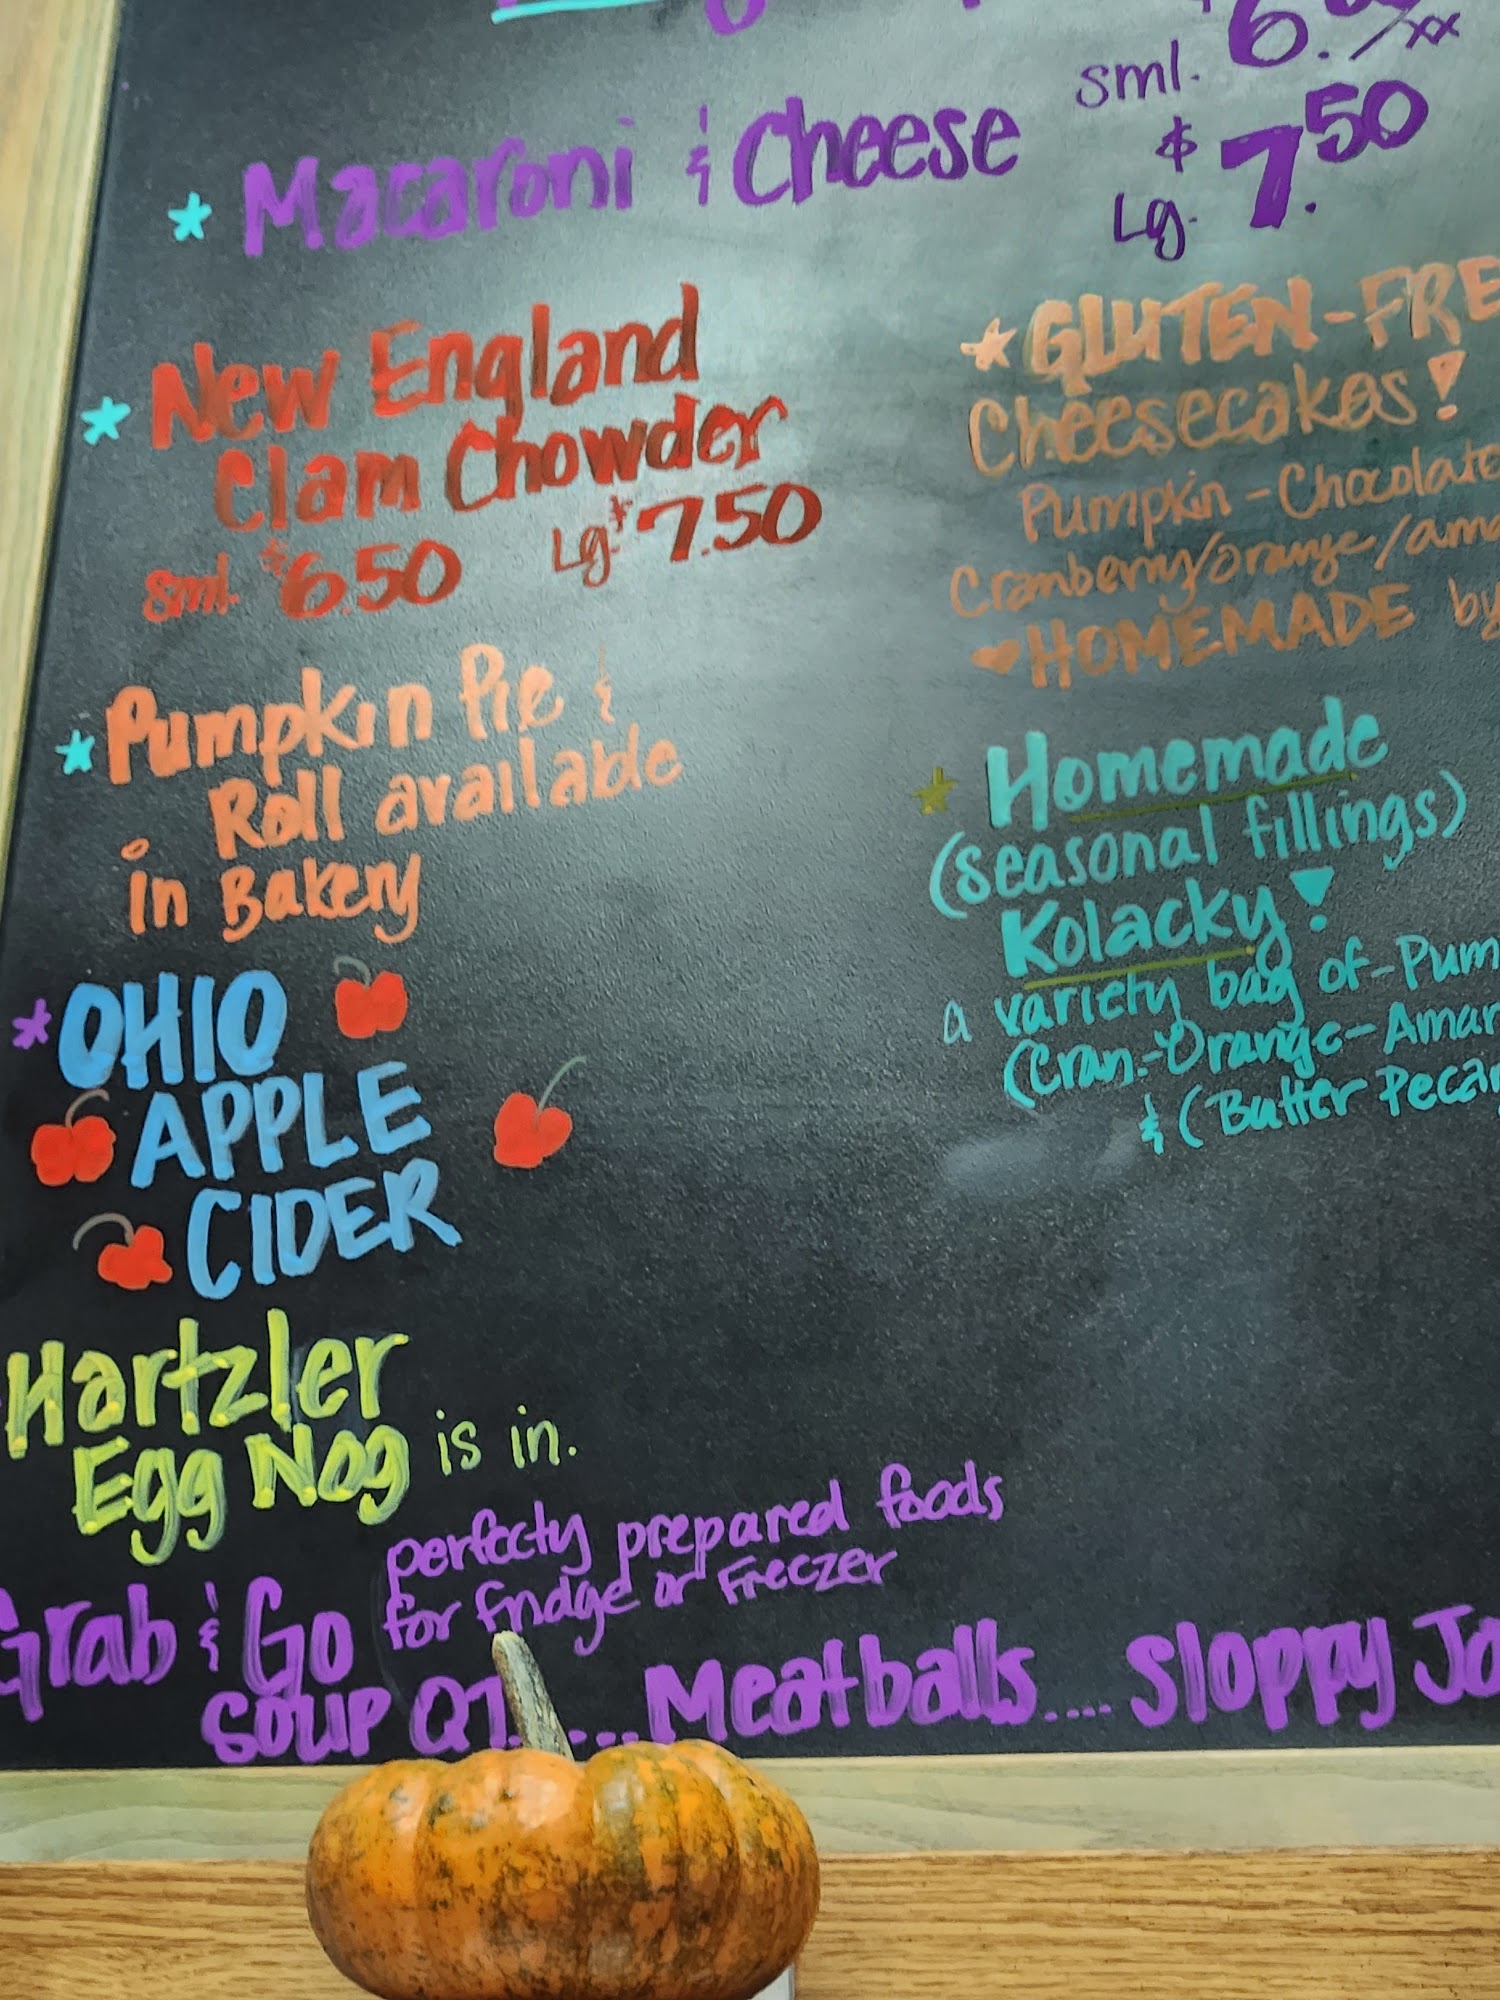 sml. 6.
* Macaroni & Cheese
Lg. $7.50
* New England
Clam Chowder
sml. $6.50 Lg. $7.50
* GLUTEN-FRE
Cheesecakes!
Pumpkin - Chocolate
Cranberry/orange/ama
♥HOMEMADE by
* Pumpkin Pie &
Roll available
in Bakery
* Homemade
(seasonal fillings)
Kolacky!
a variety bag of - Pum
(Cran.-Orange-Amar
& (Butter Pecan
* OHIO
APPLE
CIDER
Hartzler
Egg Nog is in.
Grab & Go perfectly prepared foods
for fridge or Freezer
SOUP QT. .... Meatballs.... Sloppy Jo